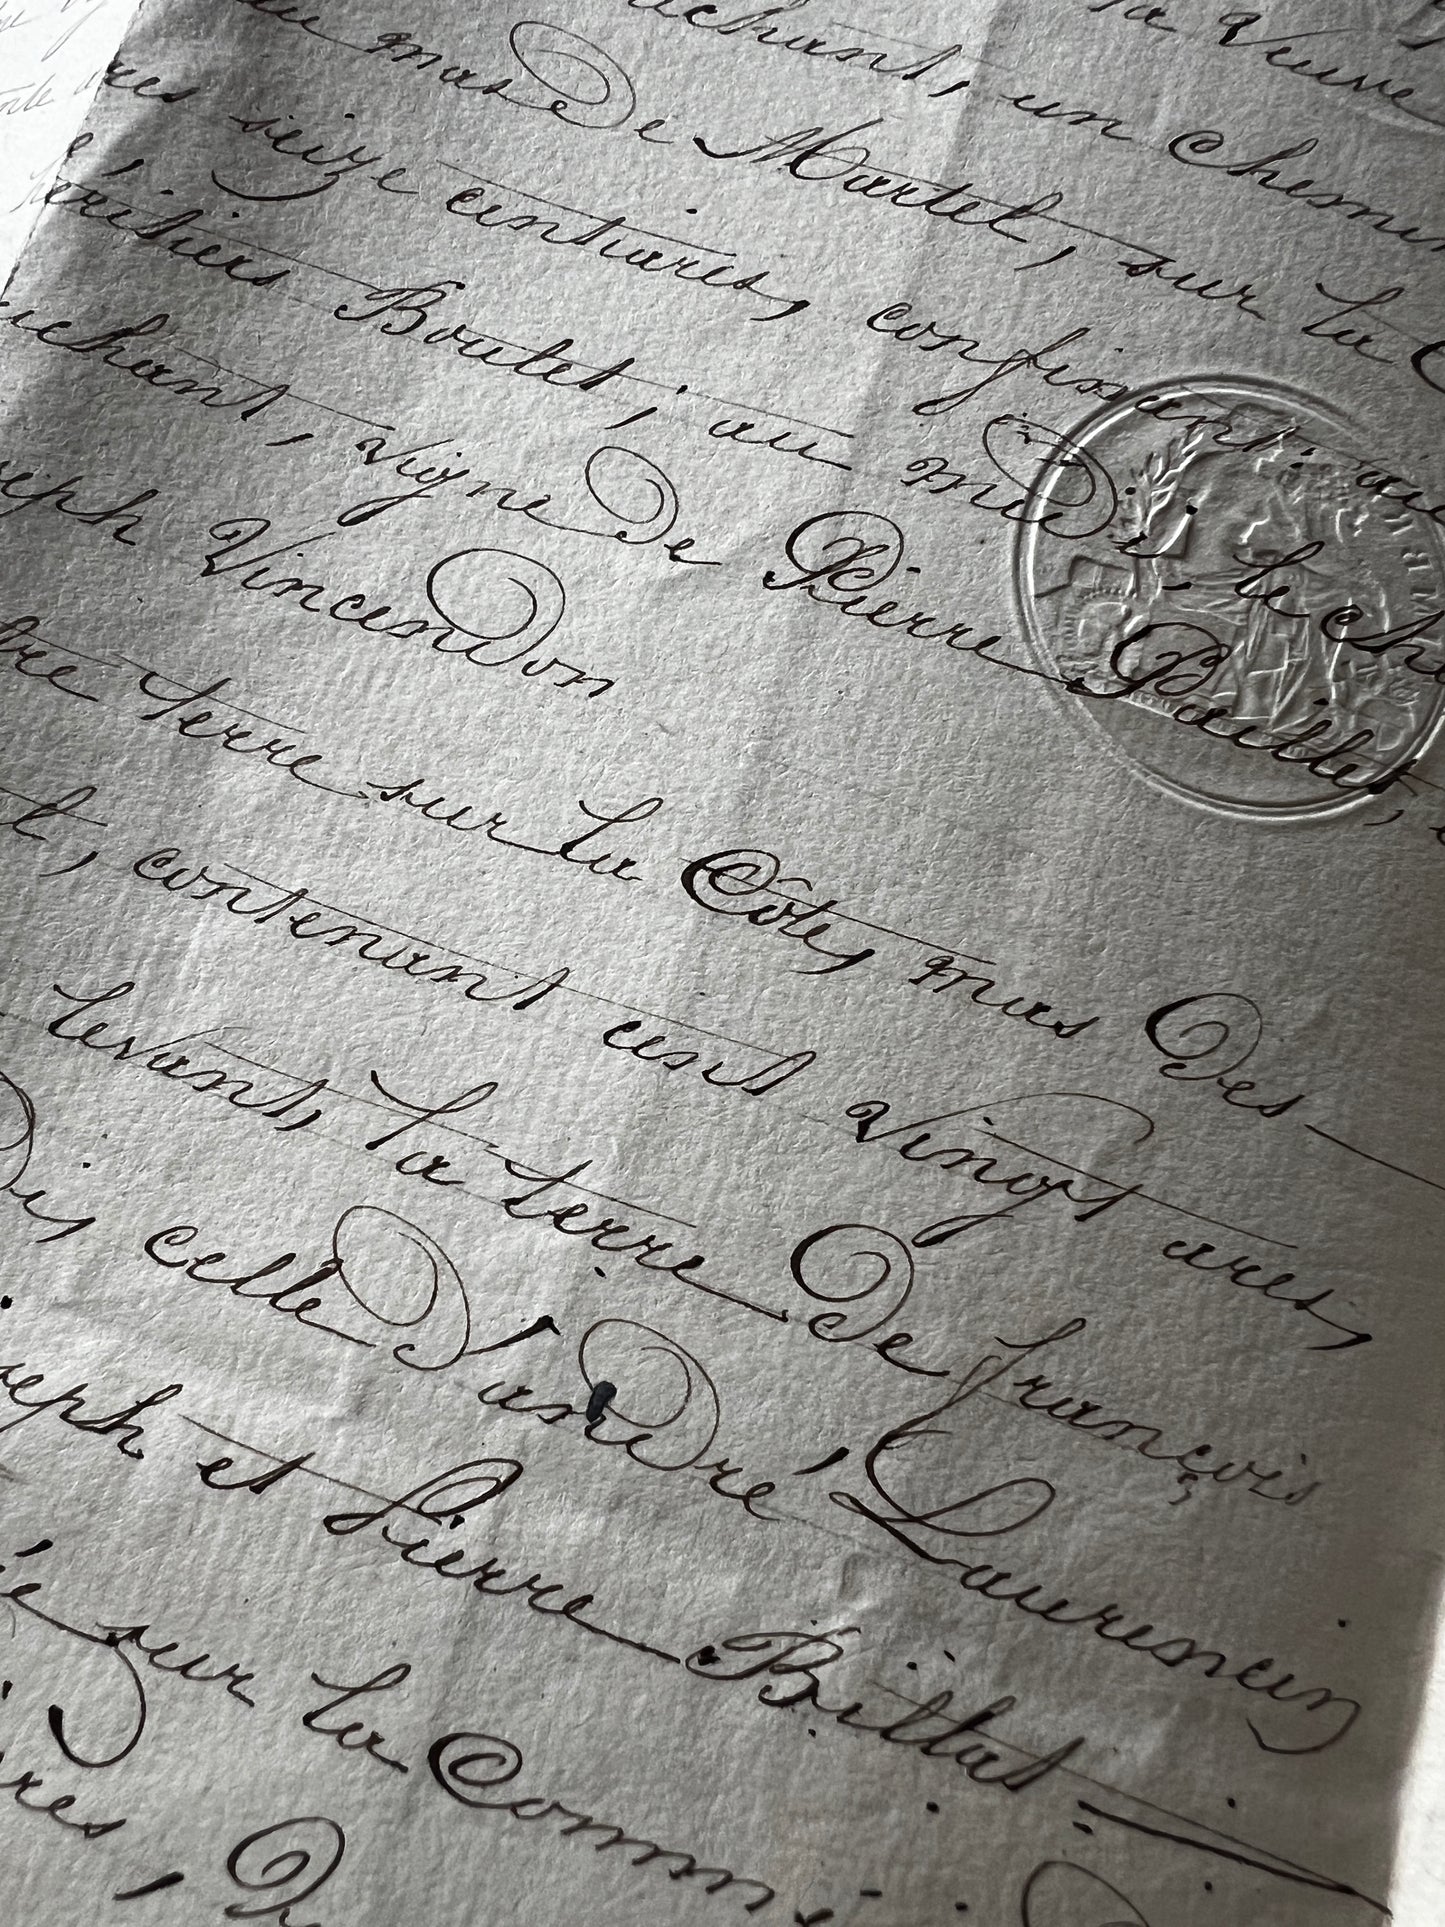 la veuve
chant, un chemin
mas de Martel, sur la
res seize centiares, confinant: au
éritiers Boutet; au midi, le che
uchant, vigne de Pierre Paillet,
seph Vincendon
tre terre sur la Côte, mas des
t, contenant cent vingt ares,
levant, la terre de françois
di, celle d'andré Laurencin
seph et Pierre Billat
sur la Comm
res, d